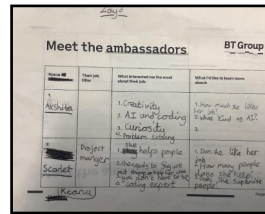 Zoya
Meet the ambassadors
BT Group
Name
Their job title:
What interested me the most about their job:
What I'd like to learn more about:
1.
Akshita
1. Creativity
2. AI and coding
3. Curiosity
4. Problem solving
1. How much she likes her job
2. What kind of AI?
3.
2.
Scarlet
Project manger
1. She helps people
2. She
you don't have to be
a coding expert
1. Dose she like her job
2. How many people
does she help
3. the supervise
people
Kearu